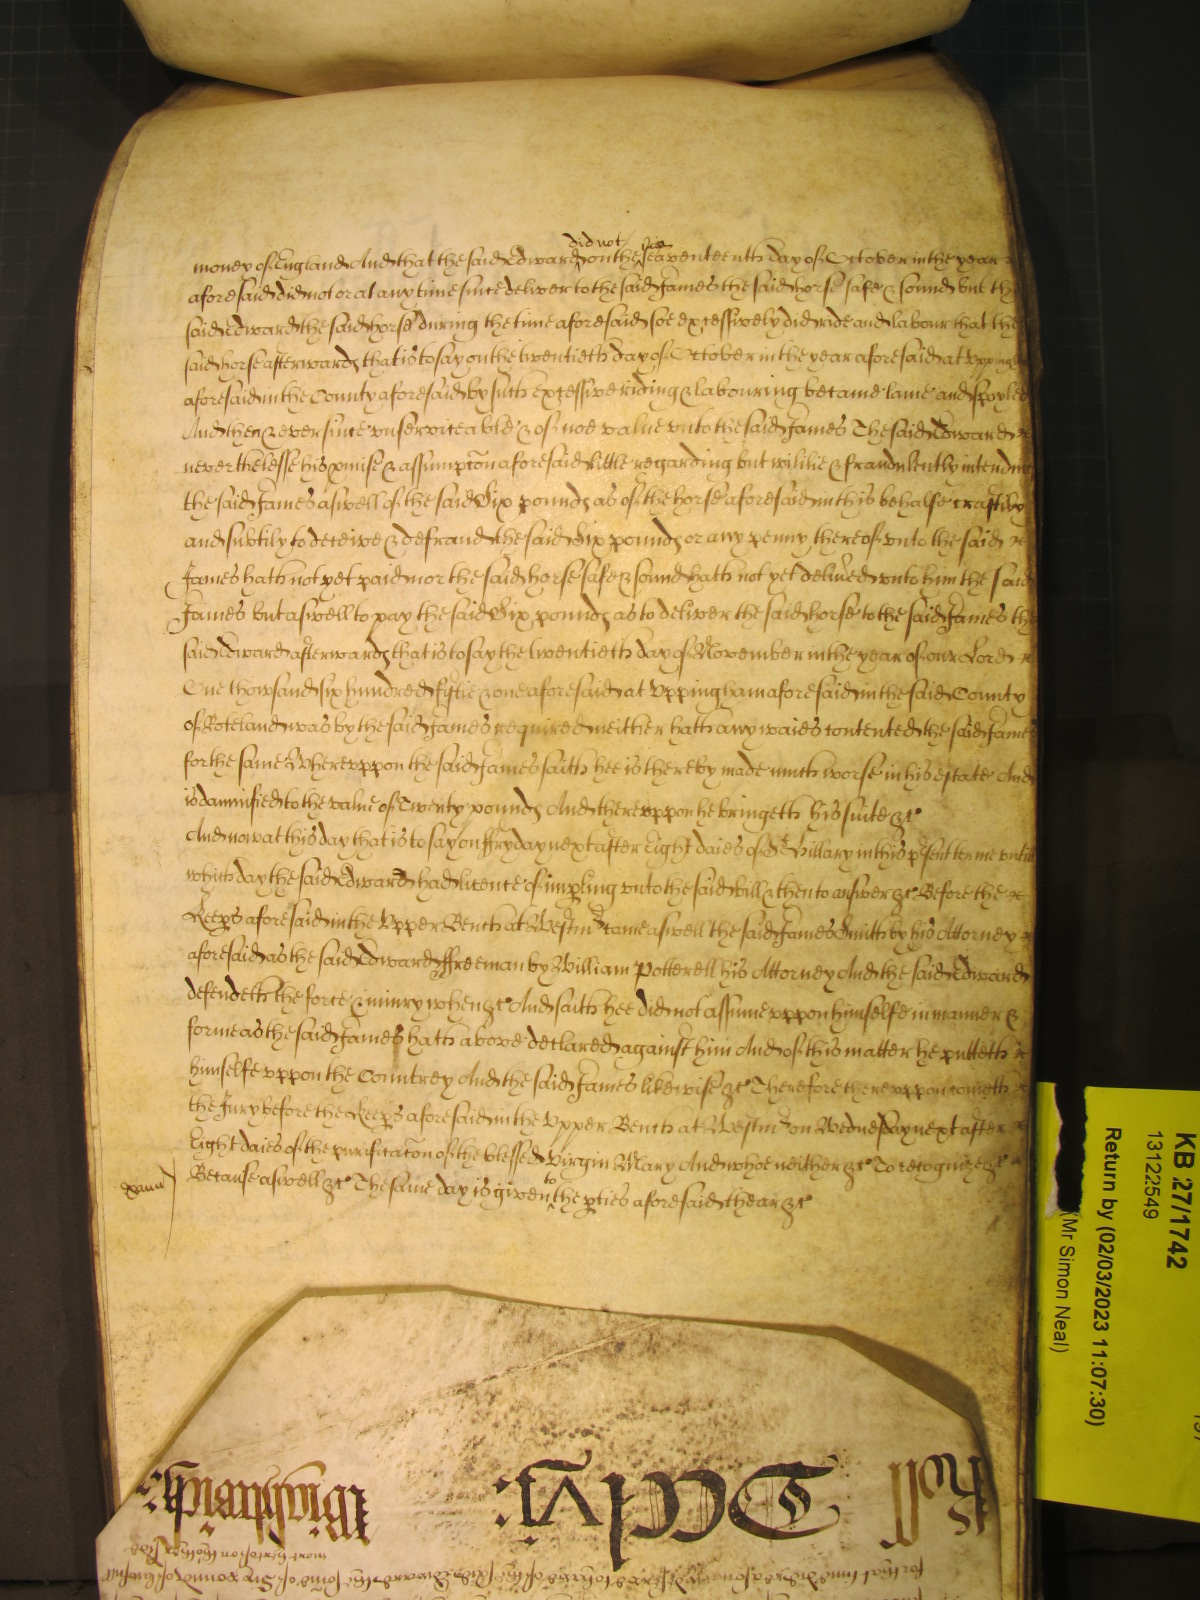 did not said
money of England And that the said Edward on the seaventeenth day of October in the year
aforesaid did not or at any time since deliver to the said James the said horse safe & sound but the
said Edward the said horse during the time aforesaid soe excessively did ride and labour that the
said horse afterwards that is to say on the twentieth day of October in the year aforesaid at Uppingham
aforesaid in the County aforesaid by such excessive riding & labouring became lame and spoyled
And then & ever since unserviceable & of noe value unto the said James The said Edward
neverthelesse his pmise & assumpcon aforesaid little regarding but wililie & fraudulently intending
the said James aswell of the said Six pounds as of the horse aforesaid in this behalfe craftily
and subtily to deceive & defraud the said Six pounds or any penny thereof unto the said
James hath not yet paid nor the said horse safe & sound hath not yet delivered unto him the said
James but aswell to pay the said Six pounds as to deliver the said horse to the said James the
said Edward afterwards that is to say the twentieth day of November in the year of our Lord
One thowsand six hundred fiftie & one aforesaid at Uppingham aforesaid in the said County
of Roteland was by the said James required neither hath any waies contented the said James
for the same Whereuppon the said James saith hee is thereby made much worse in his estate And
is damnified to the value of Twenty pounds And thereuppon he bringeth his suite &c
And now at this day that is to say on ffryday next after Eight daies of St Hillary in this psent terme untill
which day the said Edward had licence of impling unto the said bill & then to answer &c Before the
Keeps aforesaid in the Upper Bench at Westmr came aswell the said James Smith by his Attorney
aforesaid as the said Edward ffreeman by William Potterell his Attorney And the said Edward
defendeth the force & iniury when &c And saith hee did not assume uppon himselfe in manner &
forme as the said James hath above declared against him And of this matter he putteth
himselfe uppon the Countrey And the said James likewise &c Therefore thereuppon cometh
the Jury before the Keeps aforesaid in the Upper Bench at Westmr on Wednesday next after
Eight daies of the purificacon of the blessed Virgin Mary And whoe neither &c To recognize &c
Because aswell &c The same day is given to the pties aforesaid thear &c
Roll
KB 27/1742
13122549
Return by (02/03/2023 11:07:30)
(Mr Simon Neal)